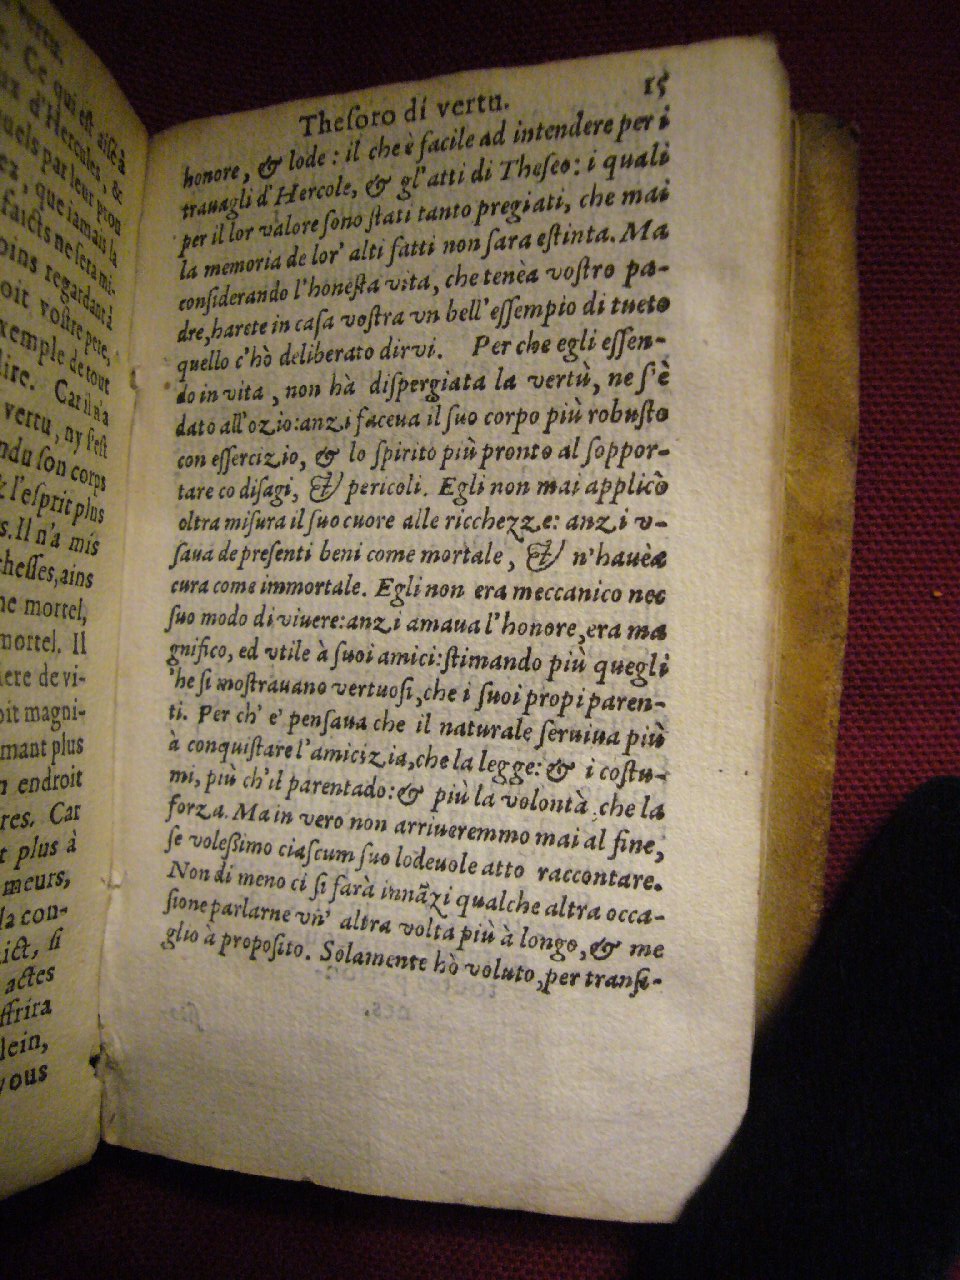 vertu.
. Ce qui est aisé à
ux d'Hercules, &
uels par leur prou
ez, que iamais la
faicts ne sera mi-
oins regardant à
oit vostre pere,
xemple de tout
dire. Car il n'a
vertu, ny s'est
ndu son corps
& l'esprit plus
s. Il n'a mis
chesses, ains
ne mortel,
mortel. Il
iere de vi-
oit magni-
mant plus
n endroit
res. Car
t plus à
meurs,
la con-
ict, si
actes
ffrira
lein,
vous
Thesoro di vertu. 15
honore, & lode : il che è facile ad intendere per i
trauagli d'Hercole, & gl'atti di Theseo: i quali
per il lor valore sono stati tanto pregiati, che mai
la memoria de lor' alti fatti non sara estinta. Ma
considerando l'honesta vita, che tenèa vostro pa-
dre, harete in casa vostra vn bell'essempio di tueto
quello c'hò deliberato dirvi. Per che egli essen-
do in vita, non hà dispergiata la vertù, ne s'è
dato all'ozio: anzi faceua il suo corpo più robusto
con essercizio, & lo spirito più pronto al soppor-
tare co disagi, & pericoli. Egli non mai applicò
oltra misura il suo cuore alle ricchezze: anzi v-
saua de presenti beni come mortale, & n'hauèa
cura come immortale. Egli non era meccanico nec
suo modo di viuere: anzi amaua l'honore, era ma
gnifico, ed vtile à suoi amici: stimando più quegli
'he si mostrauano vertuosi, che i suoi propi paren-
ti. Per ch' e' pensaua che il naturale seruiua più
à conquistare l'amicizia, che la legge: & i costu-
mi, più ch'il parentado: & più la volontà che la
forza. Ma in vero non arriueremmo mai al fine,
se volessimo ciascum suo lodeuole atto raccontare.
Non di meno ci si farà innãzi qualche altra occa-
sione parlarne vn' altra volta più à longo, & me
glio à proposito. Solamente hò voluto, per transi-